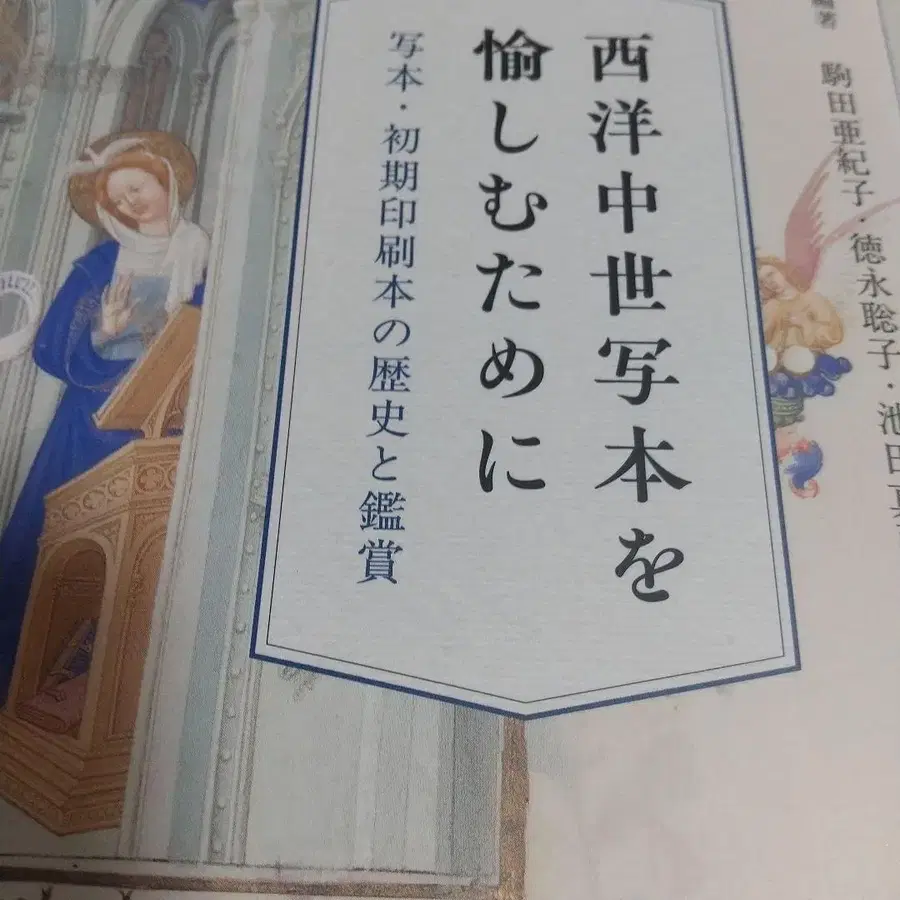 西洋中世写本を
愉しむために
写本・初期印刷本の歴史と鑑賞
編著
駒田亜紀子・徳永聡子・池田真